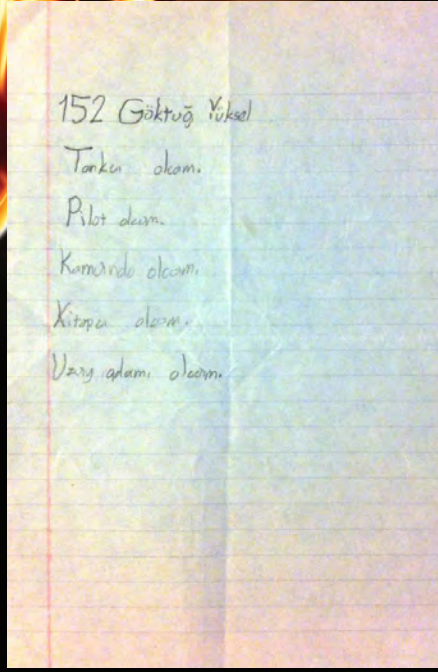 152 Göktuğ Yüksel
Tankcı olcam.
Pilot olcam.
Komando olcam.
Kitapcı olcam.
Uzay adamı olcam.